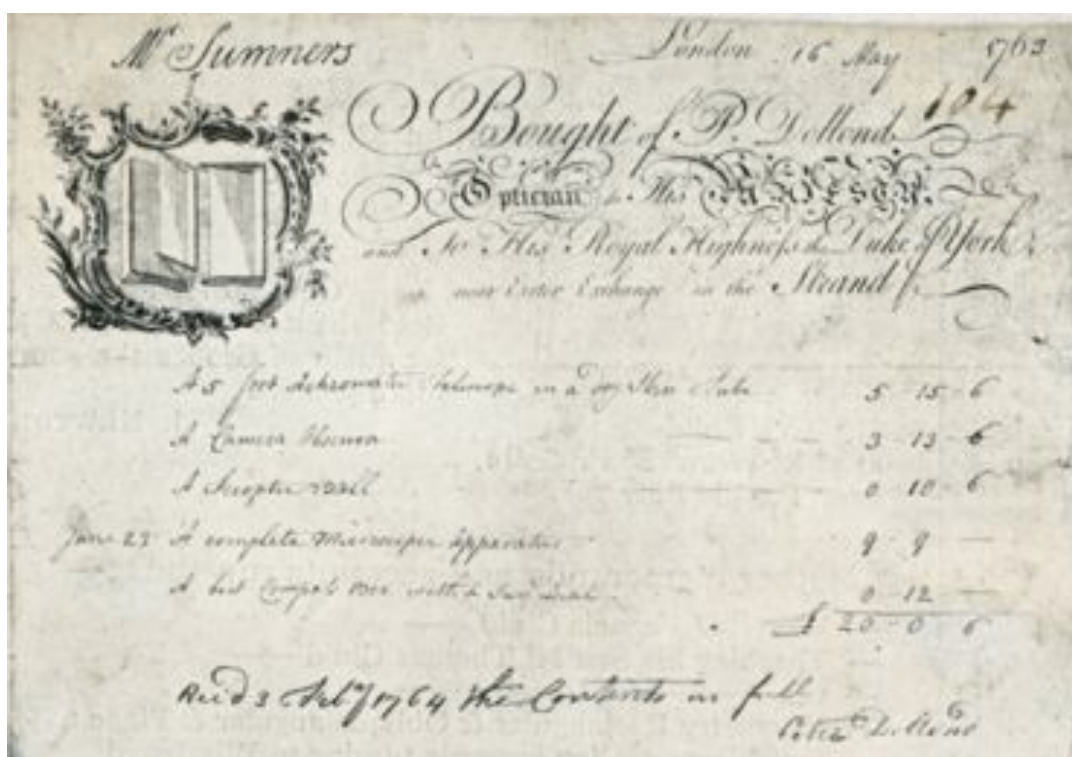 Mr Sumners London 16 May 1763
104
Bought of P. Dollond
Optician to His MAJESTY
and to His Royal Highness the Duke of York
near Exeter Exchange in the Strand
A 5 foot Achromatic Telescope in a Tube 5 15 6
A Camera Obscura 3 13 6
A Scioptic Ball 0 10 6
June 23 A complete Microscope Apparatus 9 9 —
A best Compass Box with a Sun Dial 0 12 —
£ 20 0 6
Recd 3 Feby 1764 the Contents in full
Peter Dollond